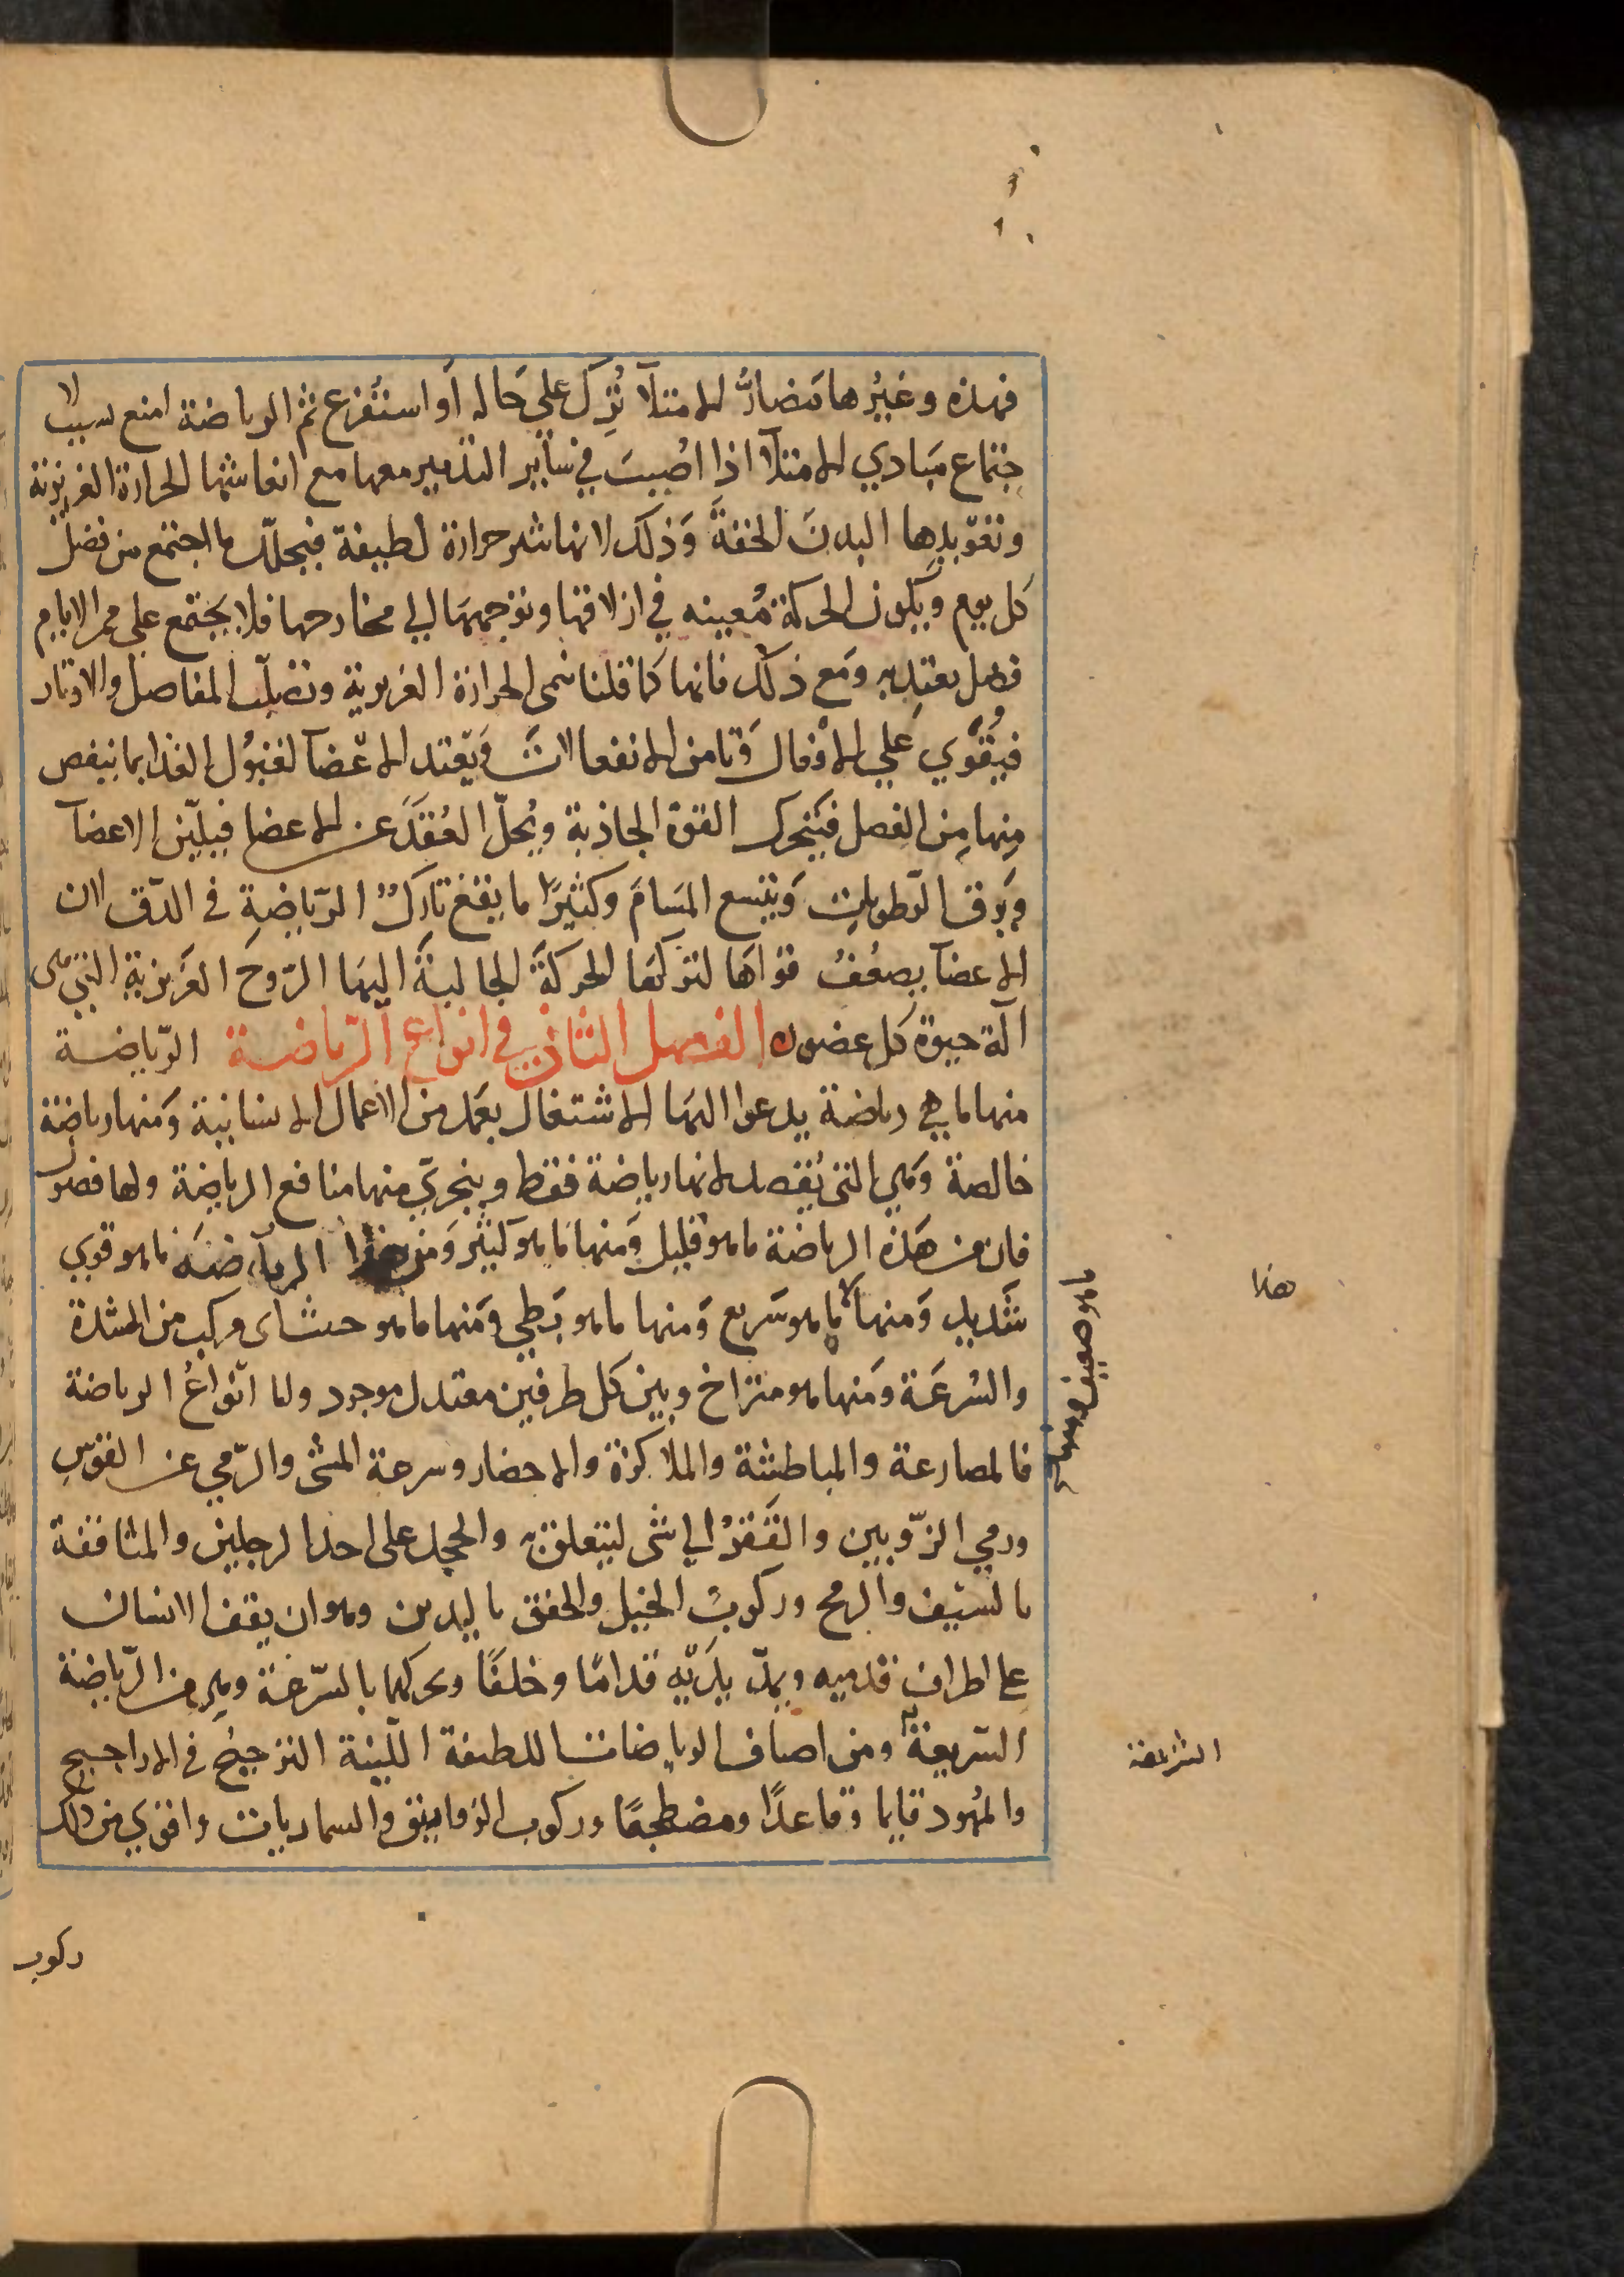 فهذه وغيرها مضارّ الامتلآ تُرِك علي حَاله أو استُفرغ ثم الرياضة امنع لسبب لا
جتماع مَبادي الامتلآ اذا اصُيبَ في سآير التدبير معها مع انعاشها الحرارة الغريزية
وتعوّيدِها البدنَ الخفةَ وَذلك لانها تثير حرارة لطيفة فيحلّل ما اجتمع من فضل
كل يوم ويَكون الحركة مُعينه في ازلاقها وتوجيهَها الي مخارجها فلا يجتمع علي مر الايام
فضل يعتد به ومَع ذلك فانها كما قلنا تنمى الحرارة الغريزية وتصلّب المفاصل والاوتار
فيُقوَي عَلي الافعال وَتامن الانفعالات وَيَعتد الاعضآ لقبوُل الغذا بما ينقص
مِنها مِن الفصل فَيتحرك القوة الجاذبة ويُحلّ العُقدَ عن الاعضا فيليّن الاعضآ
وَيرق الرّطوبات وَيتسع المَسامَ وكثيرًا ما يقع تارك الرّياضةِ في الدّق لان
الاعضآ يضعُفُ قوَاهَا لتركهَا الحركةَ الجالبةَ اليهَا الرّوحَ الغريزية التي هى
آلة حيوة كل عضو الفصل الثاني في انواع الرّياضة الرّياضة
منها ما هي رياضة يدعوا اليهَا الاشتغال بعَمل من الاعمال الانسانية وَمنها رياضة
خالصة وَهي التى تُقصد لانها رياضة فقط ويتحرّي منها منافع الرياضة ولها فصول
فان من هَذه الرياضة ما هو قليل وَمنها مَا هو كثير وَمن هذا الرياضَه ما هو قوي
شَديد وَمنها ما هو سَريع وَمنها ما هو بَطي وَمنها ما هو حثيث اى مركب من الشدة
والسُرعَة وَمنها هو متراخ وبين كل طرفين معتدل موجود واما اَنواعُ الرياضة
فالمصارعة والمباطشة والملاكزة والاحضار وسرعة المشى والرّمي عن القوس
ورمي الزّوبين والقَفزُ الي شى ليتعلق به والحجل على احدا لرجلين والمثاقفة
بالسَيف والرمح وركوبُ الخيل والخفق باليدين وهو ان يقف الانسان
على اطراف قدميه ويمدّ يدَيّه قدامًا وخلفًا ويحركهما بالسّرعَة وهي من الرّياضة
السّريعة ومن اصاف الرياضات اللطيفة اللّينة الترجيُح في الاراجيح
والمُهود قايما وَقاعدًا ومضطجعًا وركوب الزواريق والسماريات واقوي من ذلك
ركوب
ما هو ضعيف ومنها
هذا